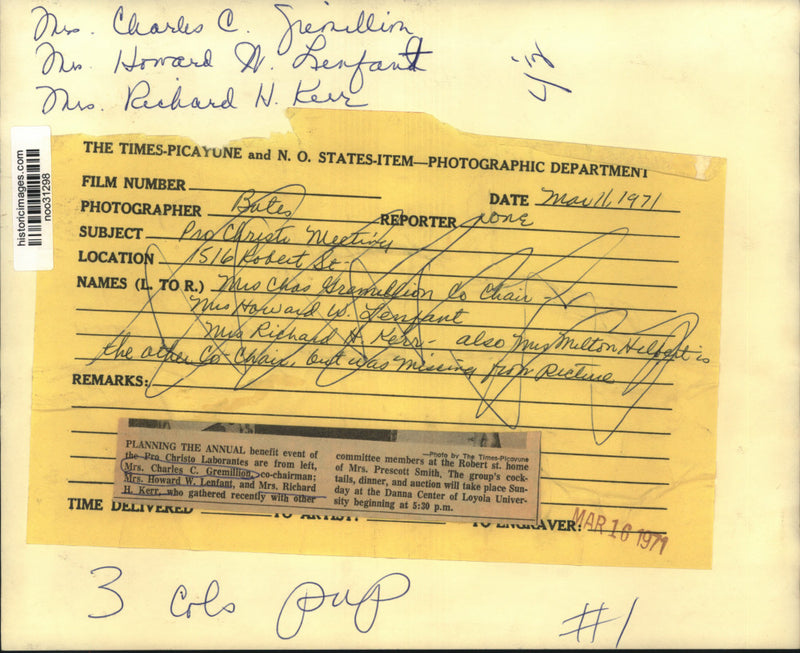 Mrs. Charles C. Gremillion
Mrs. Howard W. Lenfant
Mrs. Richard H. Kerr
historicimages.com
noo31298
THE TIMES-PICAYUNE and N. O. STATES-ITEM—PHOTOGRAPHIC DEPARTMENT
FILM NUMBER
DATE Mar 11, 1971
PHOTOGRAPHER Bates REPORTER none
SUBJECT Pro Christo Meeting
LOCATION 1516 Robert St.
NAMES (L. TO R.) Mrs Chas Gremillion Co Chair
Mrs Howard W. Lenfant
Mrs Richard H. Kerr - also Mrs Milton Hilbert is
the other Co-Chair, but was missing from Picture
REMARKS:
PLANNING THE ANNUAL benefit event of
the Pro Christo Laborantes are from left,
Mrs. Charles C. Gremillion, co-chairman;
Mrs. Howard W. Lenfant, and Mrs. Richard
H. Kerr, who gathered recently with other
—Photo by The Times-Picayune
committee members at the Robert st. home
of Mrs. Prescott Smith. The group's cock-
tails, dinner, and auction will take place Sun-
day at the Danna Center of Loyola Univer-
sity beginning at 5:30 p.m.
TIME DELIVERED TO ARTIST: TO ENGRAVER:
MAR 16 1971
3 Cols pup
#1